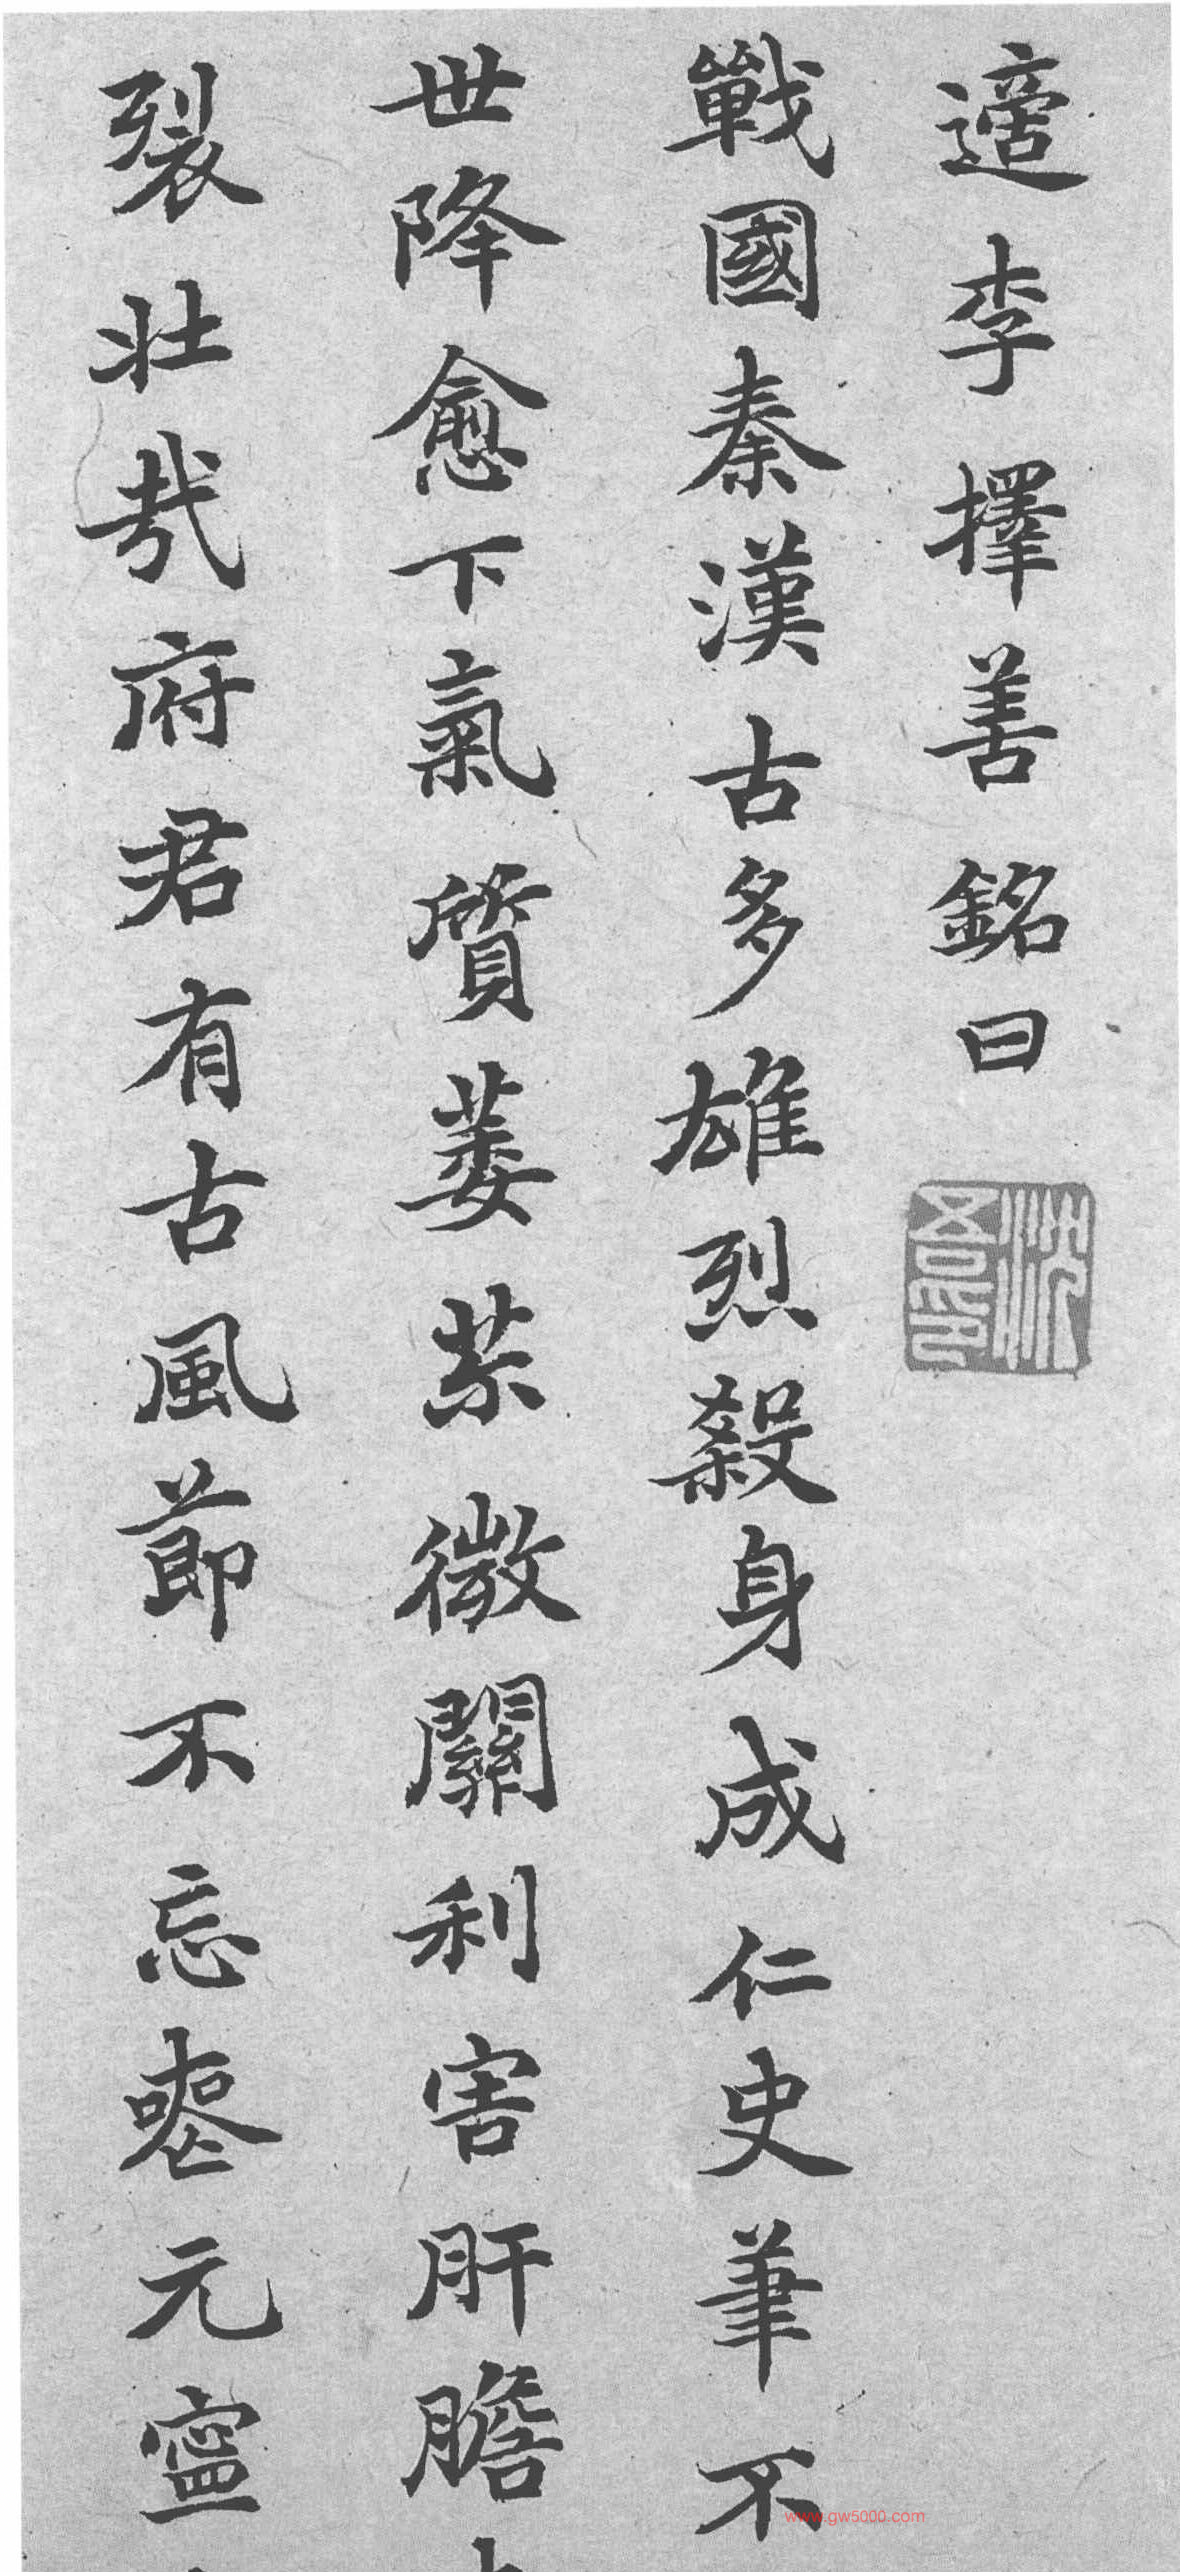 適李擇善銘曰
戰國秦漢古多雄烈殺身成仁史筆不
世降愈下氣質萎苶微關利害肝膽
裂壯哉府君有古風節不忘喪元寧
www.gw5000.com